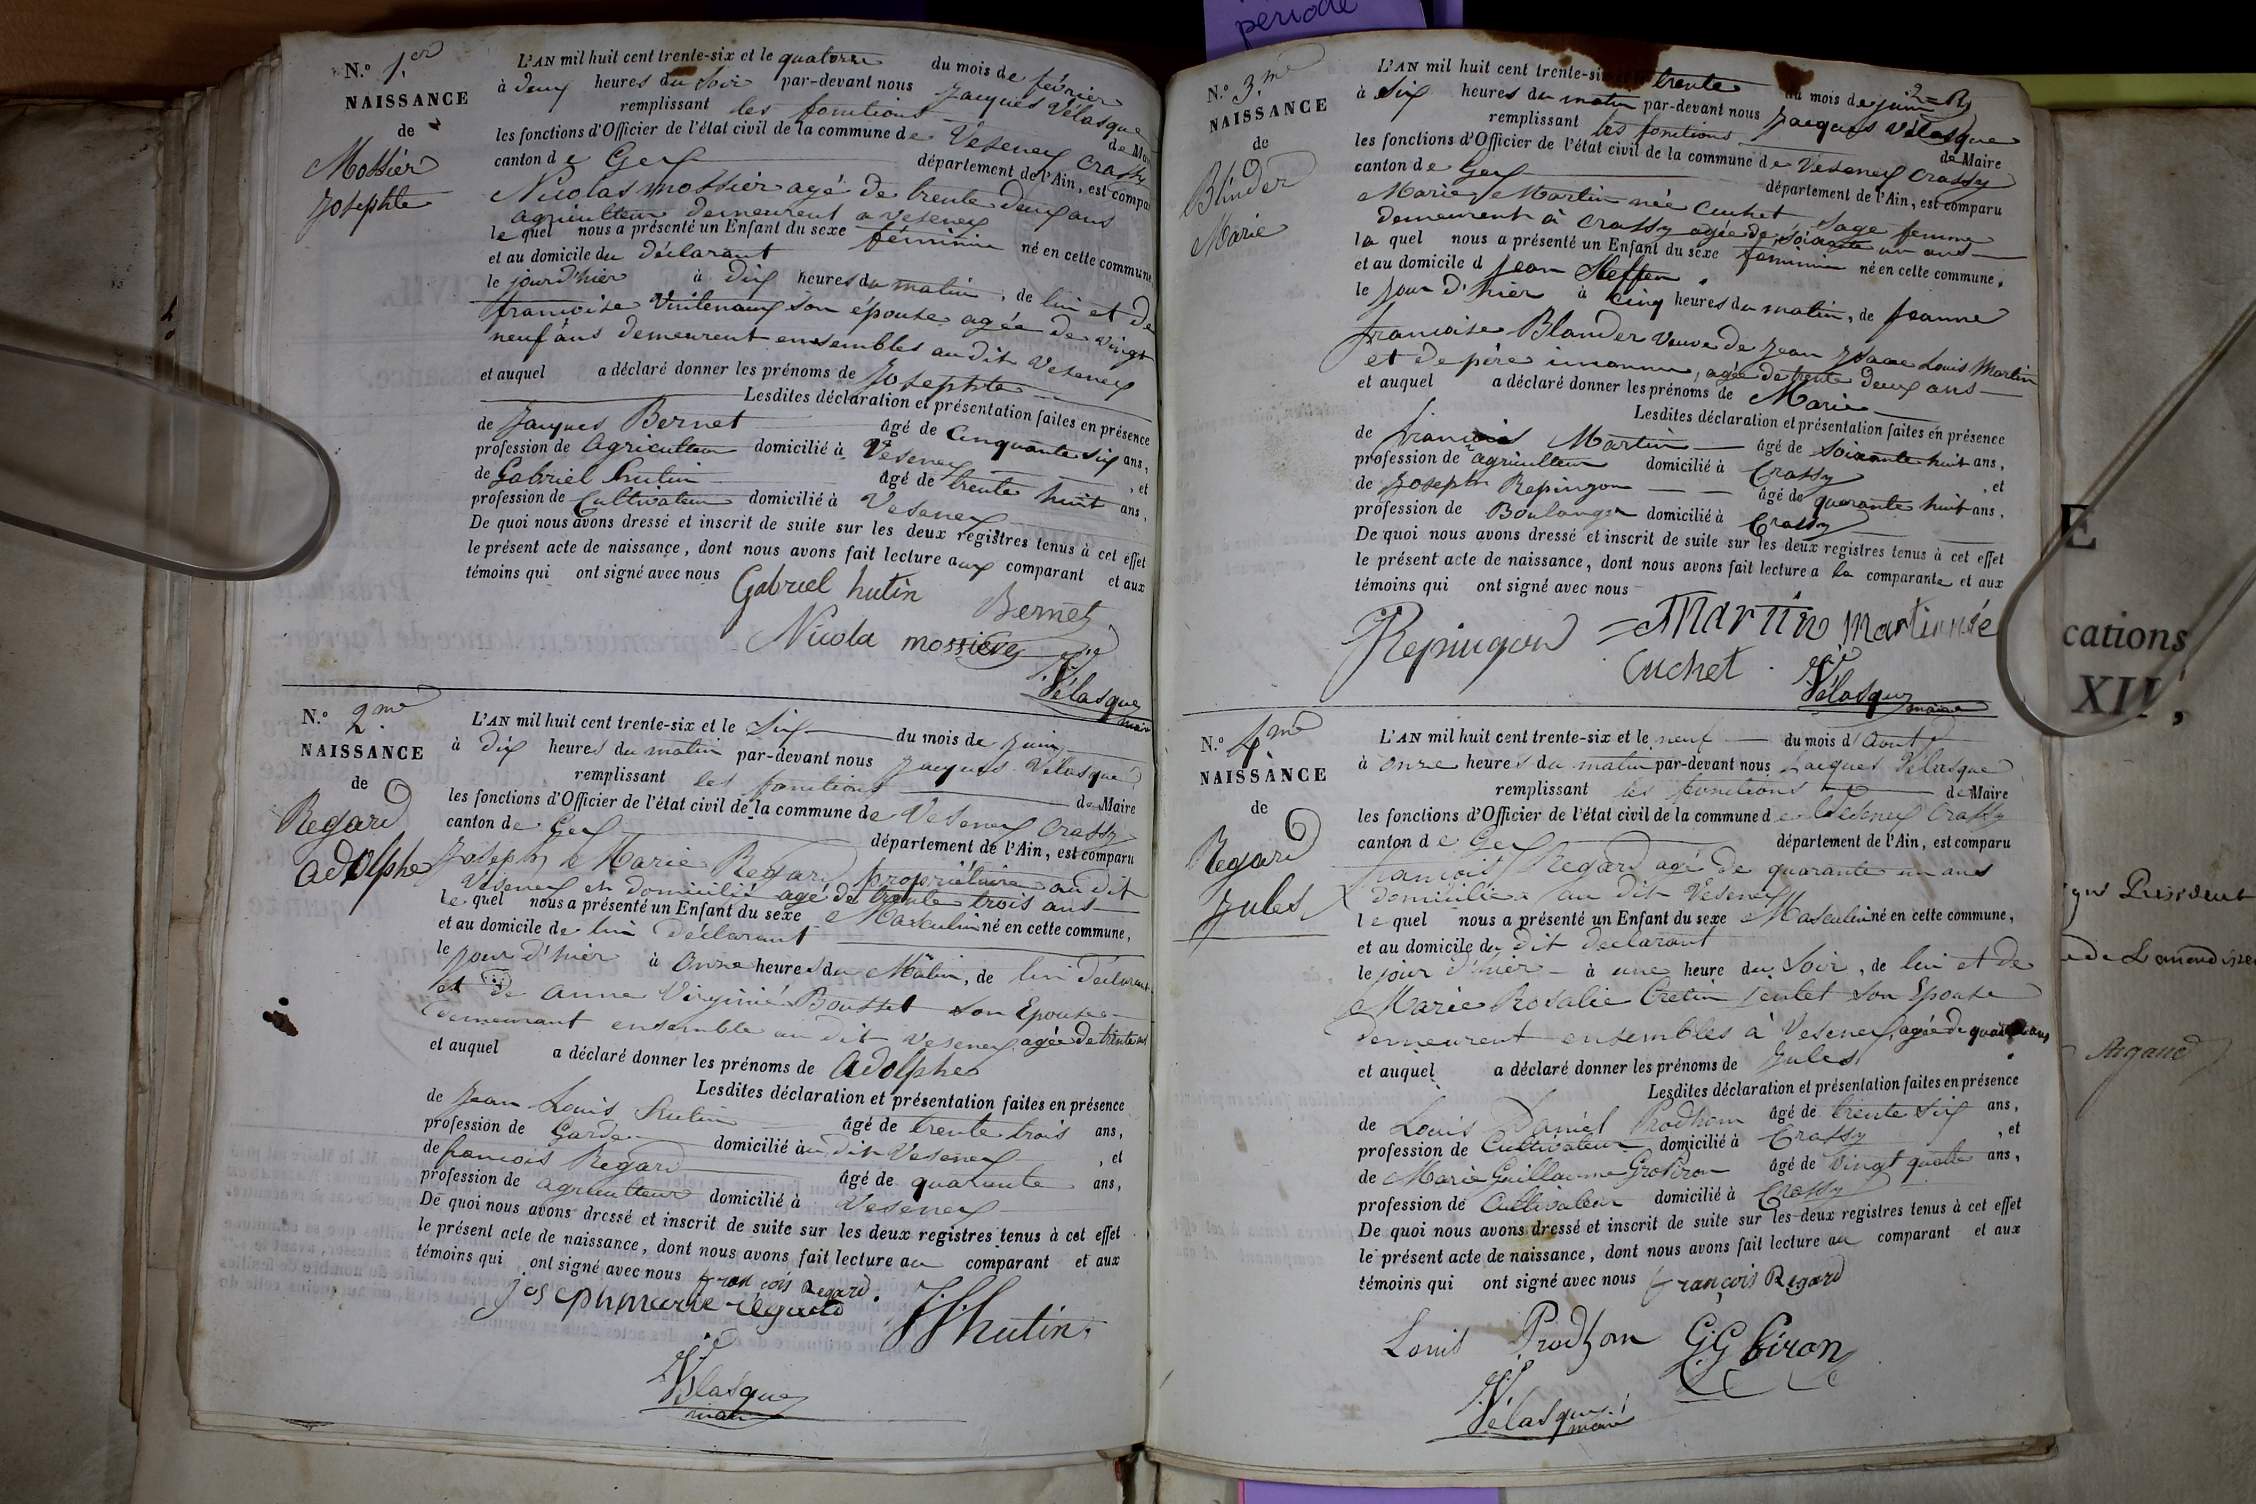 période
N.º 1.er
NAISSANCE
de
Mossier
Josephte
L'AN mil huit cent trente-six et le quatorze du mois de février
à deux heures du soir par-devant nous Jacques Vélasque
remplissant les fonctions de Mai
les fonctions d'Officier de l'état civil de la commune de Vesenex Crassy
canton de Gex département de l'Ain, est compa
Nicolas mossier agé de trente deux ans
agriculteur demeurent a vesenex
le quel nous a présenté un Enfant du sexe féminin né en cette commune,
et au domicile du déclarant
le jour d'hier à dix heures du matin, de lui et de
françoise son épouse agée de vingt
neuf ans demeurent ensembles au dit Vesenex
et auquel a déclaré donner les prénoms de Josephte
Lesdites déclaration et présentation faites en présence
de Jacques Bernet âgé de Cinquante six ans,
profession de agriculteur domicilié à Vesenex, et
de Gabriel hutin âgé de trente huit ans,
profession de Cultivateur domicilié à Vesenex
De quoi nous avons dressé et inscrit de suite sur les deux registres tenus à cet effet
le présent acte de naissance, dont nous avons fait lecture aux comparant et aux
témoins qui ont signé avec nous
Gabriel hutin Bernet
Nicola mossier
Vélasque
maire
N.º 2.me
NAISSANCE
de
Regard
adolphe
L'AN mil huit cent trente-six et le Six du mois de juin
à dix heures du matin par-devant nous Jacques Vélasque
remplissant les fonctions de Maire
les fonctions d'Officier de l'état civil de la commune de Vesenex Crassy
canton de Gex département de l'Ain, est comparu
Joseph Marie Regard propriétaire au dit
Vesenex et domicilié agé de trente trois ans
le quel nous a présenté un Enfant du sexe Masculin né en cette commune,
et au domicile de lui déclarant
le jour d'hier à onze heures du Matin, de lui déclarant
et de anne Virginie Bousset son Epouse
demeurant ensemble au dit Vesenex agée de trente ans
et auquel a déclaré donner les prénoms de adolphe
Lesdites déclaration et présentation faites en présence
de Jean Louis hutin âgé de trente trois ans,
profession de Garde domicilié au dit Vesenex, et
de françois Regard âgé de quarante ans,
profession de agriculteur domicilié à Vesenex
De quoi nous avons dressé et inscrit de suite sur les deux registres tenus à cet effet
le présent acte de naissance, dont nous avons fait lecture au comparant et aux
témoins qui ont signé avec nous françois Regard.
joseph marie regard hutin
Vélasque
maire
N.º 3.me
NAISSANCE
de
Blinder
Marie
L'AN mil huit cent trente-six trente du mois de juin
à six heures du matin par-devant nous Jacques Vélasque
remplissant les fonctions de Maire
les fonctions d'Officier de l'état civil de la commune de Vesenex Crassy
canton de Gex département de l'Ain, est comparu
Marie Martin née Cuchet Sage femme
demeurent à Crassy agée de soixante un ans
la quel nous a présenté un Enfant du sexe féminin né en cette commune,
et au domicile d Jean Steffen
le jour d'hier à cinq heures du matin, de jeanne
françoise Blander veuve de Jean Isaac Louis Martin
et de père inconnu, agée de trente deux ans
et auquel a déclaré donner les prénoms de Marie
Lesdites déclaration et présentation faites en présence
de françois Martin âgé de soixante huit ans,
profession de agriculteur domicilié à Crassy, et
de Joseph Repingon âgé de quarante huit ans,
profession de Boulanger domicilié à Crassy
De quoi nous avons dressé et inscrit de suite sur les deux registres tenus à cet effet
le présent acte de naissance, dont nous avons fait lecture a la comparante et aux
témoins qui ont signé avec nous
Repingon Martin Martin née
Cuchet
Vélasque
maire
N.º 4.me
NAISSANCE
de
Regard
Jules
L'AN mil huit cent trente-six et le neuf du mois d'Aout
à onze heures du matin par-devant nous Jacques Vélasque
remplissant les fonctions de Maire
les fonctions d'Officier de l'état civil de la commune de Vesenex Crassy
canton de Gex département de l'Ain, est comparu
françois Regard agé de quarante un ans
domicilié au dit Vesenex
le quel nous a présenté un Enfant du sexe Masculin né en cette commune,
et au domicile du dit declarant
le jour d'hier à une heure du Soir, de lui et de
Marie Rosalie son Epouse
demeurent ensembles à Vesenex, agée de ans
et auquel a déclaré donner les prénoms de Jules
Lesdites déclaration et présentation faites en présence
de Louis Daniel Prodhom âgé de trente six ans,
profession de Cultivateur domicilié à Crassy, et
de Marie Guillaume Grosfiron âgé de Vingt quatre ans,
profession de Cultivateur domicilié à Crassy
De quoi nous avons dressé et inscrit de suite sur les deux registres tenus à cet effet
le présent acte de naissance, dont nous avons fait lecture au comparant et aux
témoins qui ont signé avec nous françois Regard
Louis Prodhom G.G firon
Vélasque
maire
E
cations
XII,
Président